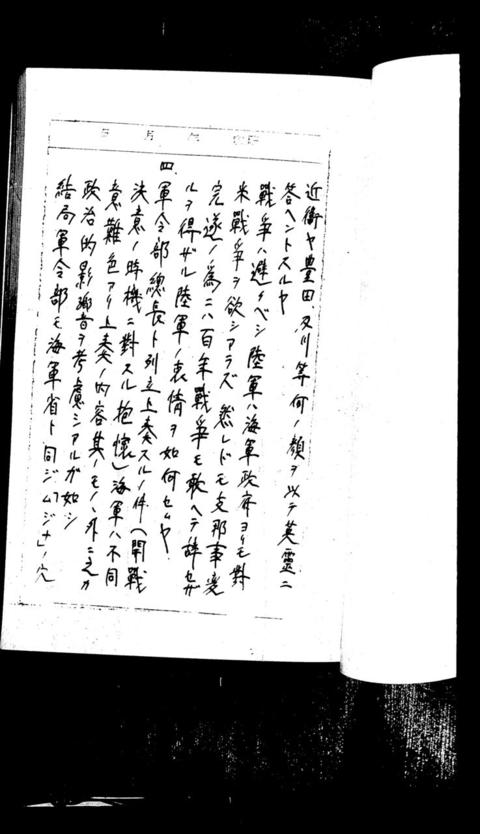 近衛ヤ豊田及川等何ノ顔ヲ以テ英靈ニ
答ヘントスルヤ
戰爭ハ避クベシ陸軍ハ海軍政府ヨリモ對
米戰爭ヲ欲シアラズ 然レドモ支那事變
完遂ノ為ニハ百年戰爭モ敢ヘテ辞セザ
ルヲ得ザル陸軍ノ衷情ヲ如何セムヤ
四、軍令部總長ト列立上奏スルノ件(開戰
決意ノ時機ニ對スル抱懐)海軍ハ不同
意難色アリ上奏ノ内容其ノモノノ外ニ之ガ
政治的影響ヲ考慮シアルガ如シ
結局軍令部モ海軍省ト同ジ「ムジナ」ノ穴